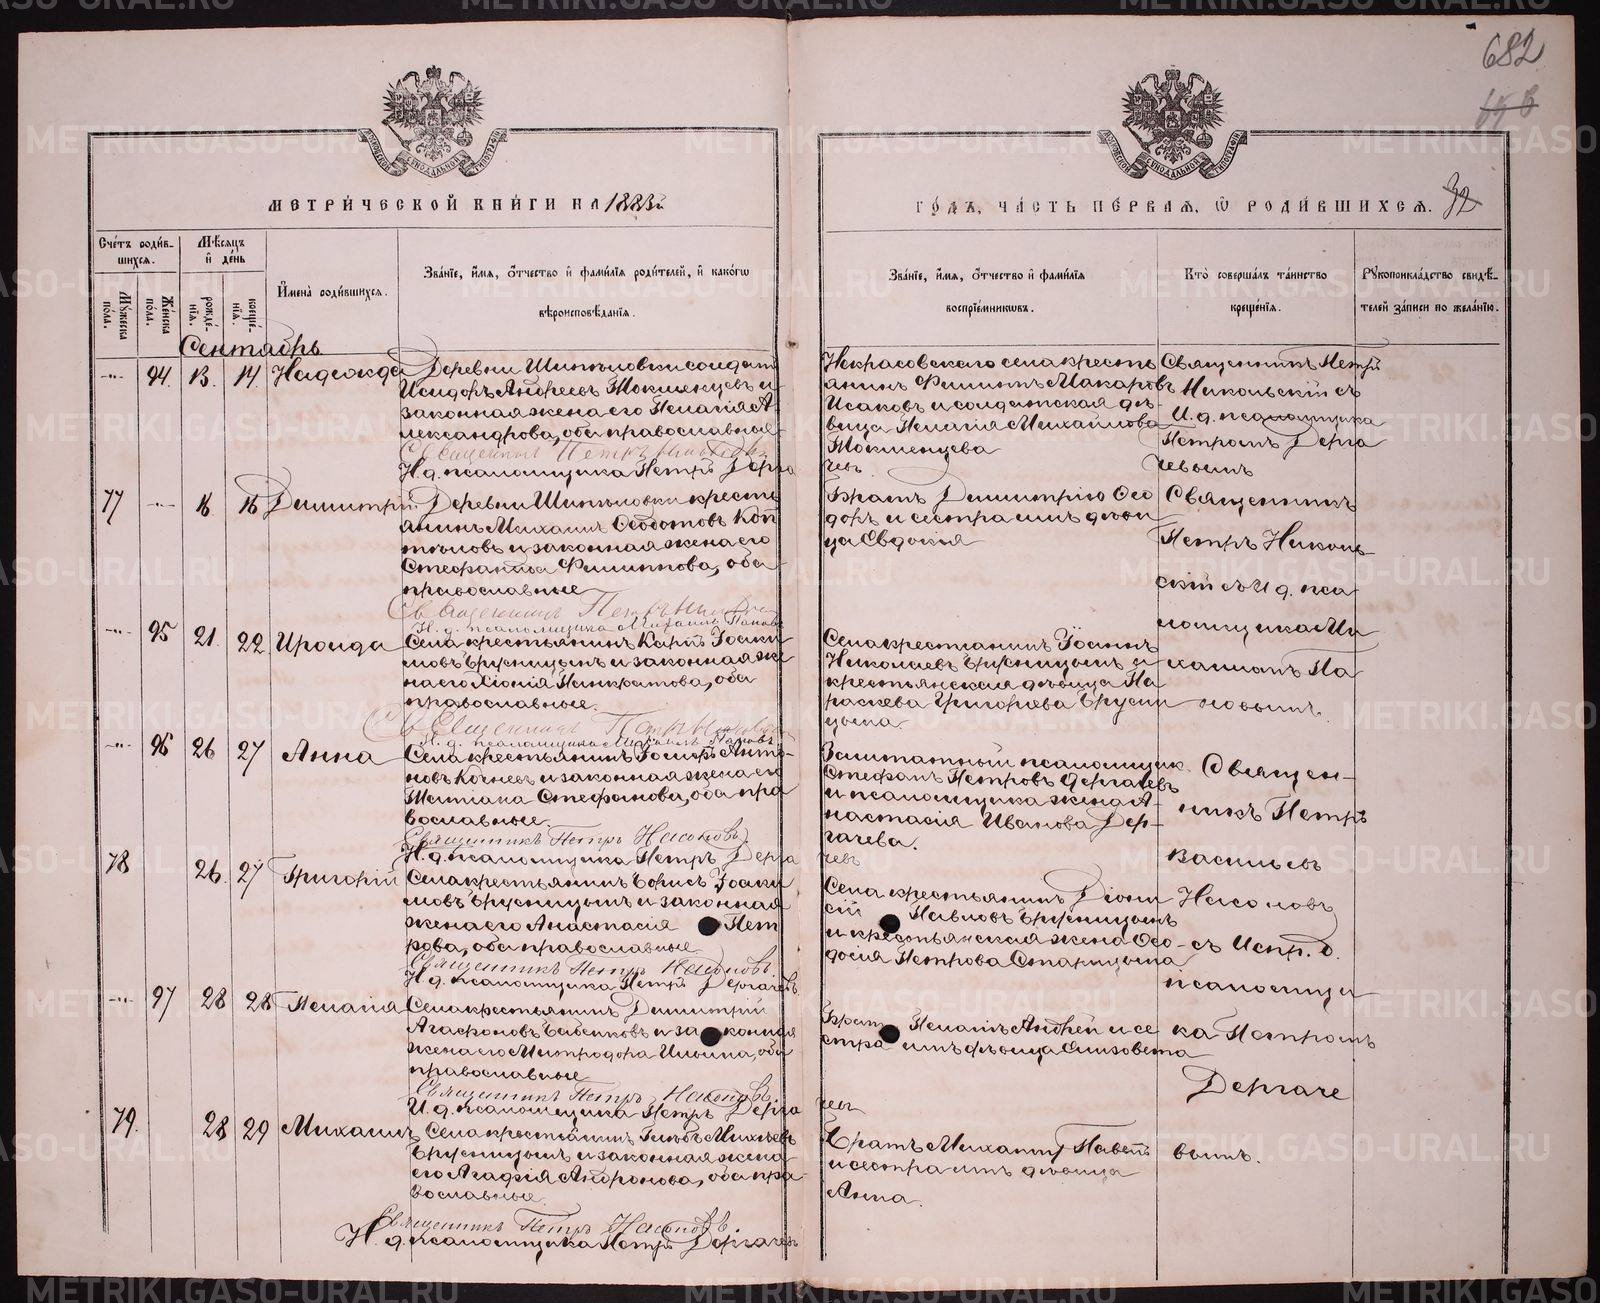 682
МЕТРИ́ЧЕСКОЙ КНИ́ГИ НА 1883й
ГО́ДЪ, ЧА́СТЬ ПЕ́РВАЯ, Ѡ РОДИ́ВШИХСЯ.
32
Сче́тъ роди́в-
шихся.
Му́жеска по́ла.
Же́нска по́ла.
Мѣ́сяцъ и́ де́нь
рожде́-нія.
креще́-нія.
И҆мена̀ роди́вшихся.
Зва́ніе, и҆́мя, ѻ҆́тчество и҆ фами́лія роди́телей, и҆ како́гѡ
вѣроисповѣ́данія.
Зва́ніе, и҆́мя, ѻ҆́тчество и҆ фами́лія
воспріе́мниковъ.
Кто̀ соверша́лъ та́инство
креще́нія.
Рꙋкоприкла́дство свидѣ́-
телей за́писи по жела́нію.
Сентябрь
94. 13. 14. Надежда
солдатъ
Исидоръ Андреевъ Токменцевъ и
законная жена его Пелагія А-
лександрова, оба православные
И.д. псаломщика Петръ Дерга
чевъ
Некрасовскаго села кресть
янинъ Филиппъ Макаровъ
Исаковъ и солдатская дѣ-
вица Пелагія Михайлова
Токменцева
Священникъ Петръ
Никольскій съ
И.д. псаломщика
Петромъ Дерга
чевымъ
77 16 16 Димитрій
кресть
янинъ Михаилъ Ѳедотовъ
и законная жена его
Стефанида Филиппова, оба
православные
Священникъ Петръ
И.д. псаломщика Михаилъ Поповъ
Братъ Димитрію Ѳео
доръ и сестра имъ дѣви
ца Евдокія
Священникъ
Петръ Николь-
скій съ И.д. пса
ломщика Ми
хаиломъ По
повымъ.
95 21. 22 Ираида
Села крестьянинъ Карпъ Іоаки
мовъ Брусницынъ и законная же
на его Хіонія Панкратова, оба
православные.
И.д. псаломщика Михаилъ Поповъ
Села крестьянинъ Іоаннъ
Николаевъ Брусницынъ и
крестьянская дѣвица Па
раскева Григорьева Брусни
цына
96 26 27 Анна
Села крестьянинъ Іосифъ Анто-
новъ и законная жена его
Татіана Стефанова, оба пра
вославные.
Священникъ Петръ Насоновъ
И.д. псаломщика Петръ Дерга
чевъ
Заштатный псаломщикъ
Стефанъ Петровъ Дергачевъ
и псаломщика жена А-
настасія Иванова Дер-
гачева.
Священ-
никъ Петръ
Васильевъ
Насоновъ
съ Испр. д.
псаломщи
ка Петромъ
Дергаче
вымъ.
78 26. 27 Григорій
Села крестьянинъ Борисъ Іоаки
мовъ Брусницынъ и законная
жена его Анастасія Пет
рова, оба православные
Священникъ Петръ Насоновъ
И.д. псаломщика Петръ Дергачевъ
Села крестьянинъ Діони
сій Павловъ Брусницынъ
и крестьянская жена Ѳео
досія Петрова Старицына
97 28 28 Пелагія
Села крестьянинъ Димитрій
Агафоновъ и законная
жена его Митродора Ильина, оба
православные
Священникъ Петръ Насоновъ
И.д. псаломщика Петръ Дерга
чевъ
Братъ Андрей и се
стра имъ дѣвица Елизовета
79. 28 29 Михаилъ
Села крестьянинъ Глѣбъ Михѣевъ
Брусницынъ и законная жена
его Агафія Андронова, оба пра
вославные
Священникъ Петръ Насоновъ.
И.д. псаломщика Петръ Дергачевъ
Братъ Михаилу Павелъ
и сестра имъ дѣвица
Анна.
METRIKI.GASO-URAL.RU